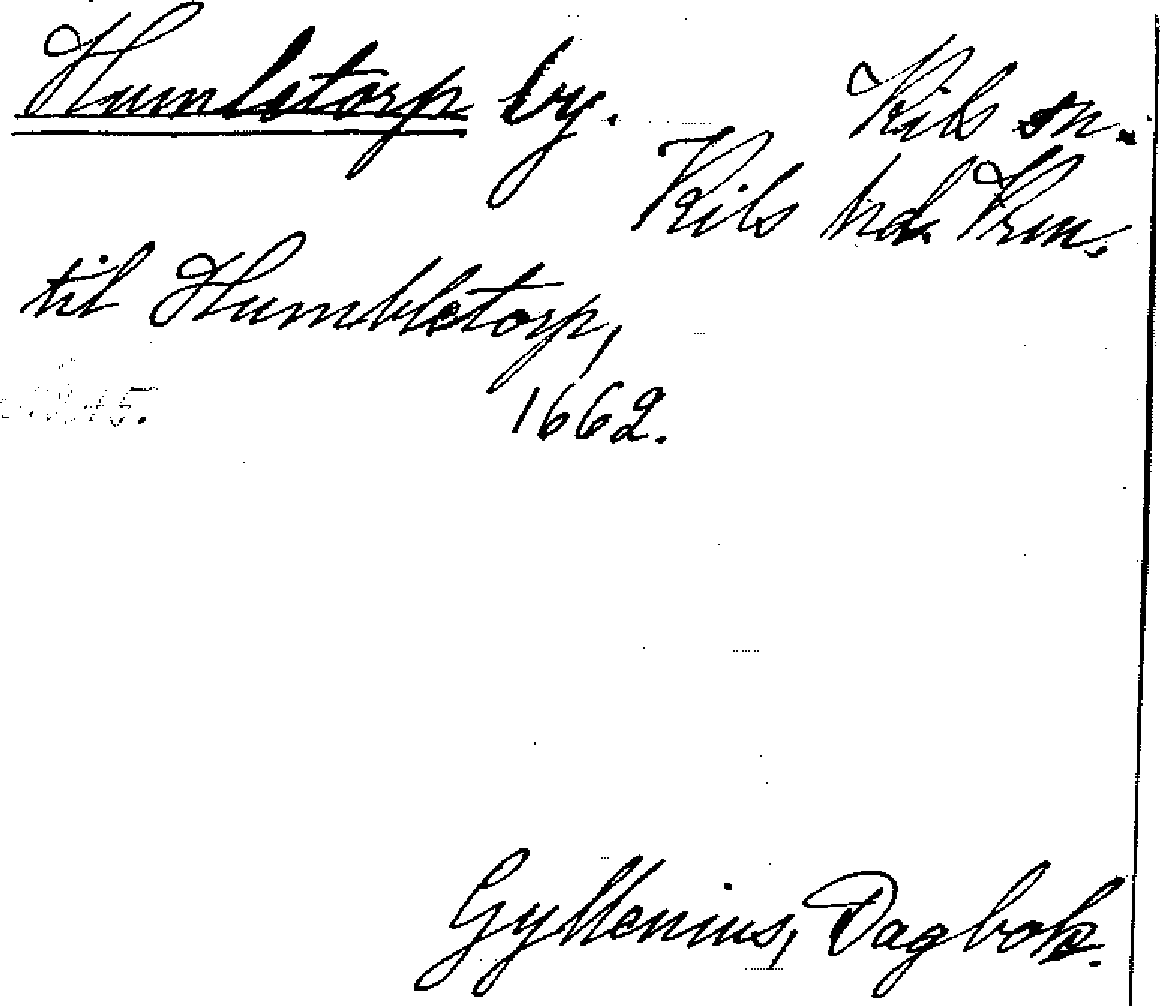 Humletorp by. Kils sn.
Kils hd. Vrm.
til Humbletorp,
1662.
Gyllenius, Dagbok.